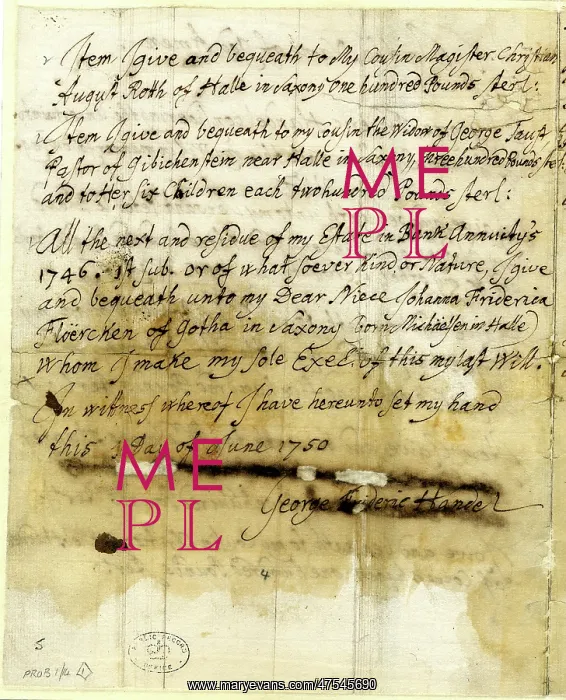 Item I give and bequeath to My Cousin Magister Christian
August Roth of Halle in Saxony one hundred Pounds sterl:
Item I give and bequeath to my Cousin the Widow of George Taust
Pastor of Gibichenstein near Halle in Saxony three hundred Pounds ster
and to Her Six Children each two hundred Pounds sterl:
All the next and residue of my Estate in Bank Annuity's
1746. 1st sub. or of what soever Kind or Nature, I give
and bequeath unto my Dear Niece Johanna Friderica
Floerchen of Gotha in Saxony born Michaëlsen in Halle
whom I make my Sole Exec. of this my last Will.
In wittness whereof I have hereunto set my hand
this 1 Day of June 1750
George Frideric Handel
4
5
PROB 1/14
PUBLIC RECORD
OFFICE
ME
PL
ME
PL
www.maryevans.com/47545690